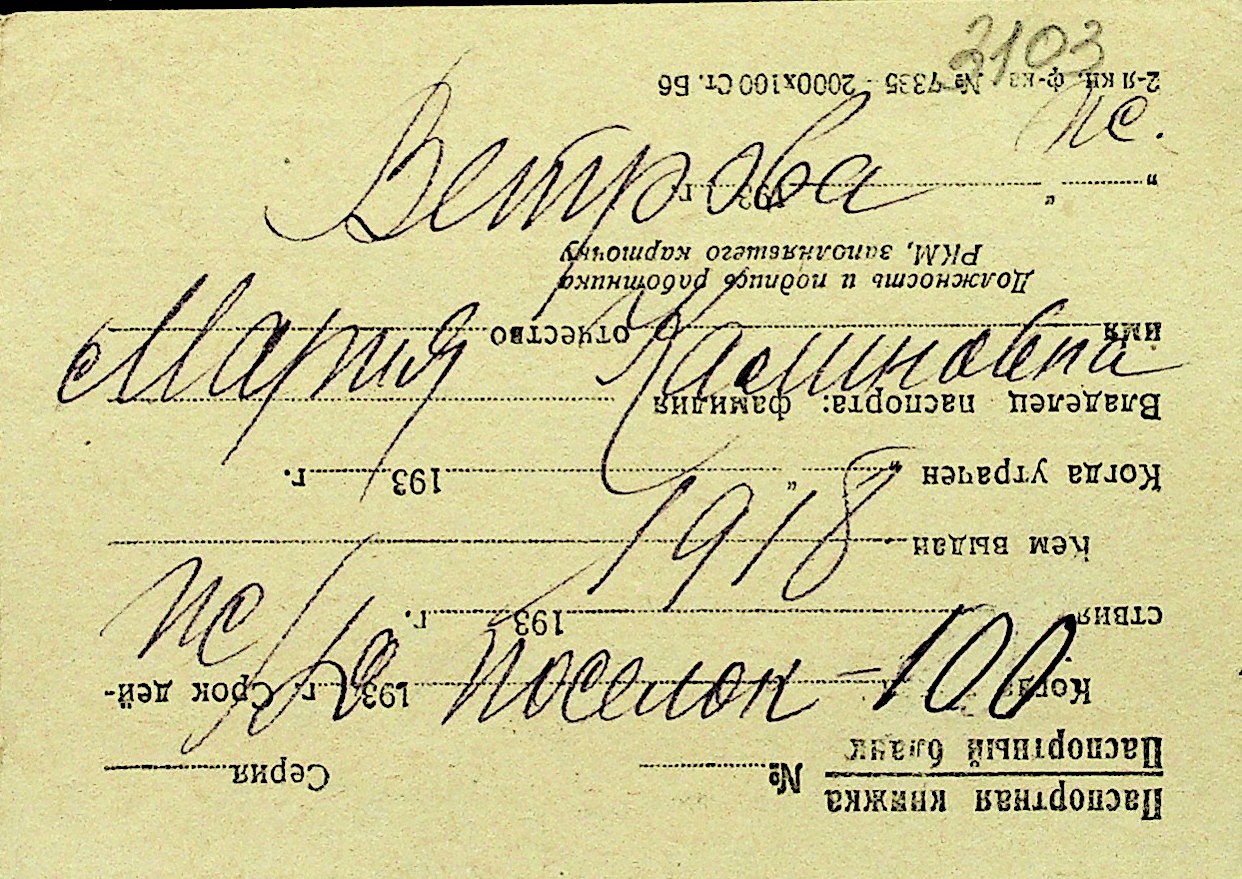 3103
пс.
Ветрова
Мария
1918
пс/ поселок -100
Паспортная книжка
Паспортный бланк № Серия
Когда 193 г. Срок дей-
ствия 193 г.
Кем выдан
Когда утрачен „ " 193 г.
Владелец паспорта: фамилия
имя отчество
Должность и подпись работника
РКМ, заполнявшего карточку
„ " 193 г.
2-я кн. ф-ка № 7335 — 2000х100 Ст. Б6